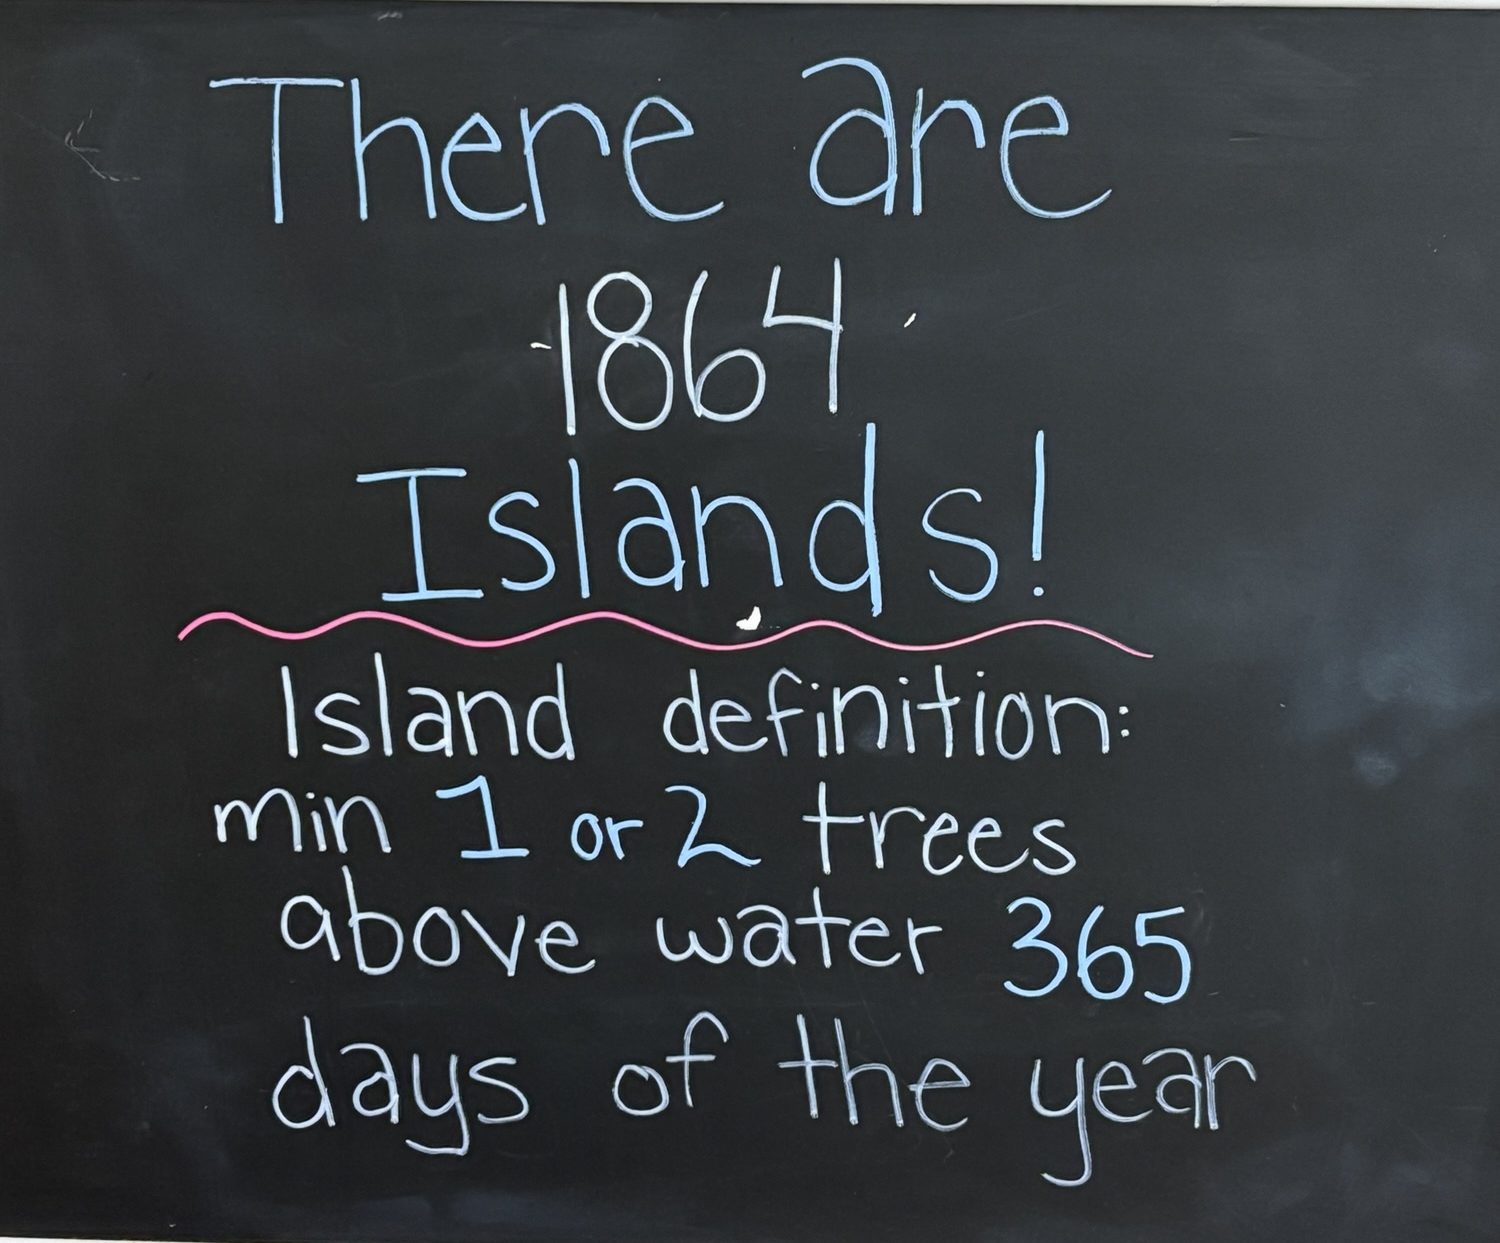 There are
1864
Islands!
Island definition:
min 1 or 2 trees
above water 365
days of the year